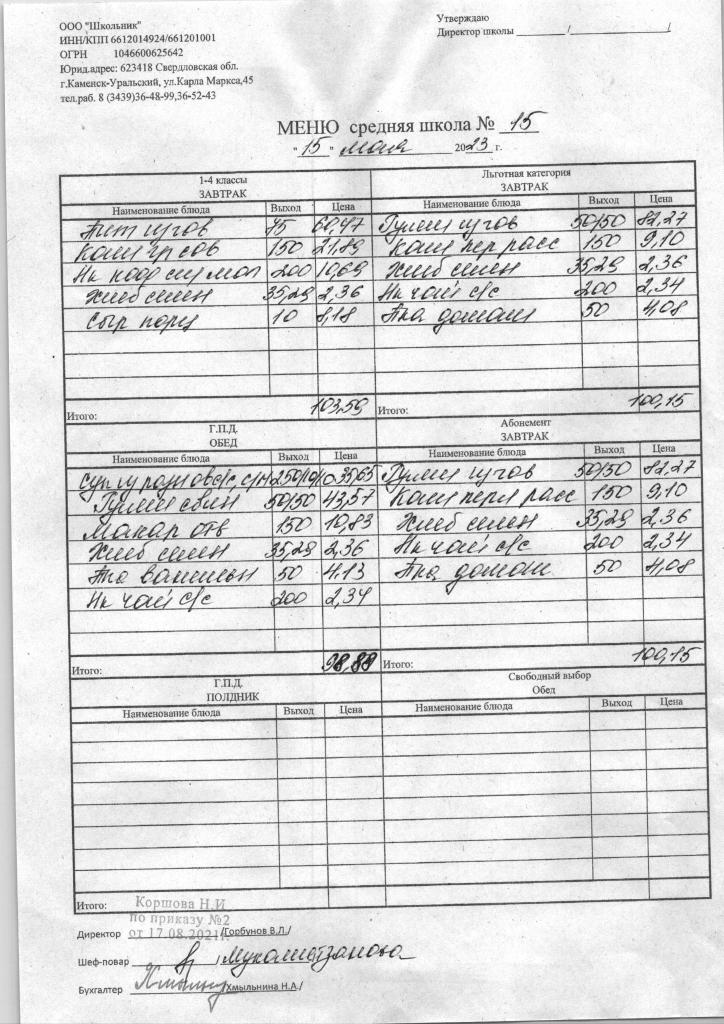 ООО "Школьник"
ИНН/КПП 6612014924/661201001
ОГРН 1046600625642
Юрид.адрес: 623418 Свердловская обл.
г.Каменск-Уральский, ул.Карла Маркса,45
тел.раб. 8 (3439)36-48-99,36-52-43
Утверждаю
Директор школы ________/________________/
МЕНЮ средняя школа № 15
"15" мая 2023 г.
1-4 классы
ЗАВТРАК
Наименование блюда Выход Цена
75 60,47
Каша 150 21,89
Нк 200 10,69
Хлеб 35,29 2,36
Сыр порц 10 8,18
Итого: 103,59
Льготная категория
ЗАВТРАК
Наименование блюда Выход Цена
Гуляш 50/50 82,27
Каша пер расс 150 9,10
Хлеб 35,29 2,36
Нк чай с/с 200 2,34
Пка домаш 50 4,08
Итого: 100,15
Г.П.Д.
ОБЕД
Наименование блюда Выход Цена
Суп 35,65
Гуляш свин 50/50 43,57
Макар отв 150 10,83
Хлеб 35,29 2,36
Пка 50 4.13
Нк чай с/с 200 2,34
Итого: 98,88
Абонемент
ЗАВТРАК
Наименование блюда Выход Цена
Гуляш 50/50 82,27
Каша перл расс 150 9,10
Хлеб 35,29 2,36
Нк чай с/с 200 2,34
Пка домаш 50 4,08
Итого: 100,15
Г.П.Д.
ПОЛДНИК
Наименование блюда Выход Цена
Итого:
Свободный выбор
Обед
Наименование блюда Выход Цена
Коршова Н.И
по приказу №2
от 17.08.2021г.
Директор /Горбунов В.Л./
Шеф-повар /
Бухгалтер /Хмыльнина Н.А./